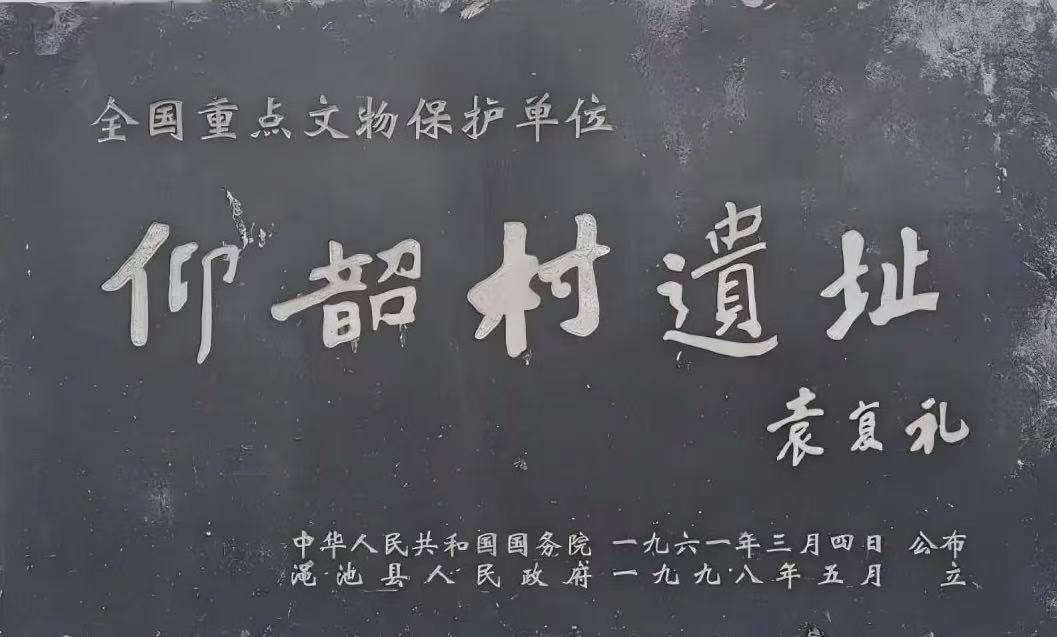 全国重点文物保护单位
仰韶村遺址
袁复礼
中华人民共和国国务院 一九六一年三月四日 公布
渑池县人民政府 一九九八年五月 立